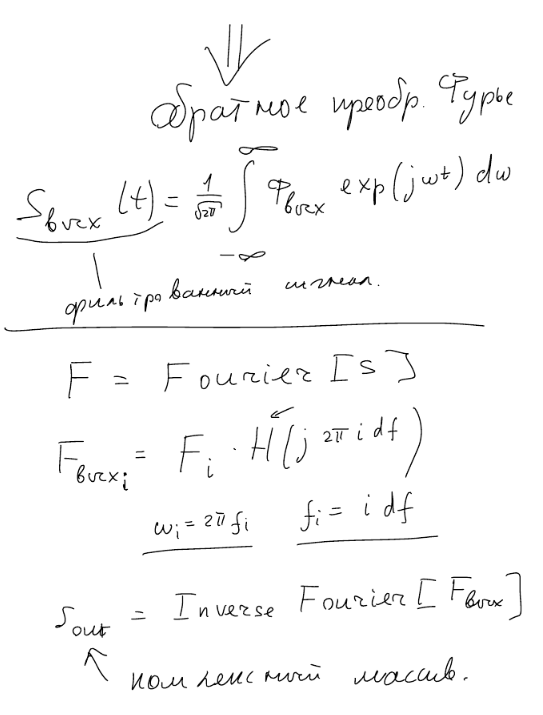 обратное преобр. Фурье
S_вых (t) = 1/√2π ∫_{-∞}^{∞} Ф_вых exp(jωt) dω
фильтрованный сигнал.
F = Fourier [S]
F_вых_i = F_i · H(j 2π i df)
ω_i = 2π f_i    f_i = i df
S_out = Inverse Fourier [F_вых]
комплексный массив.